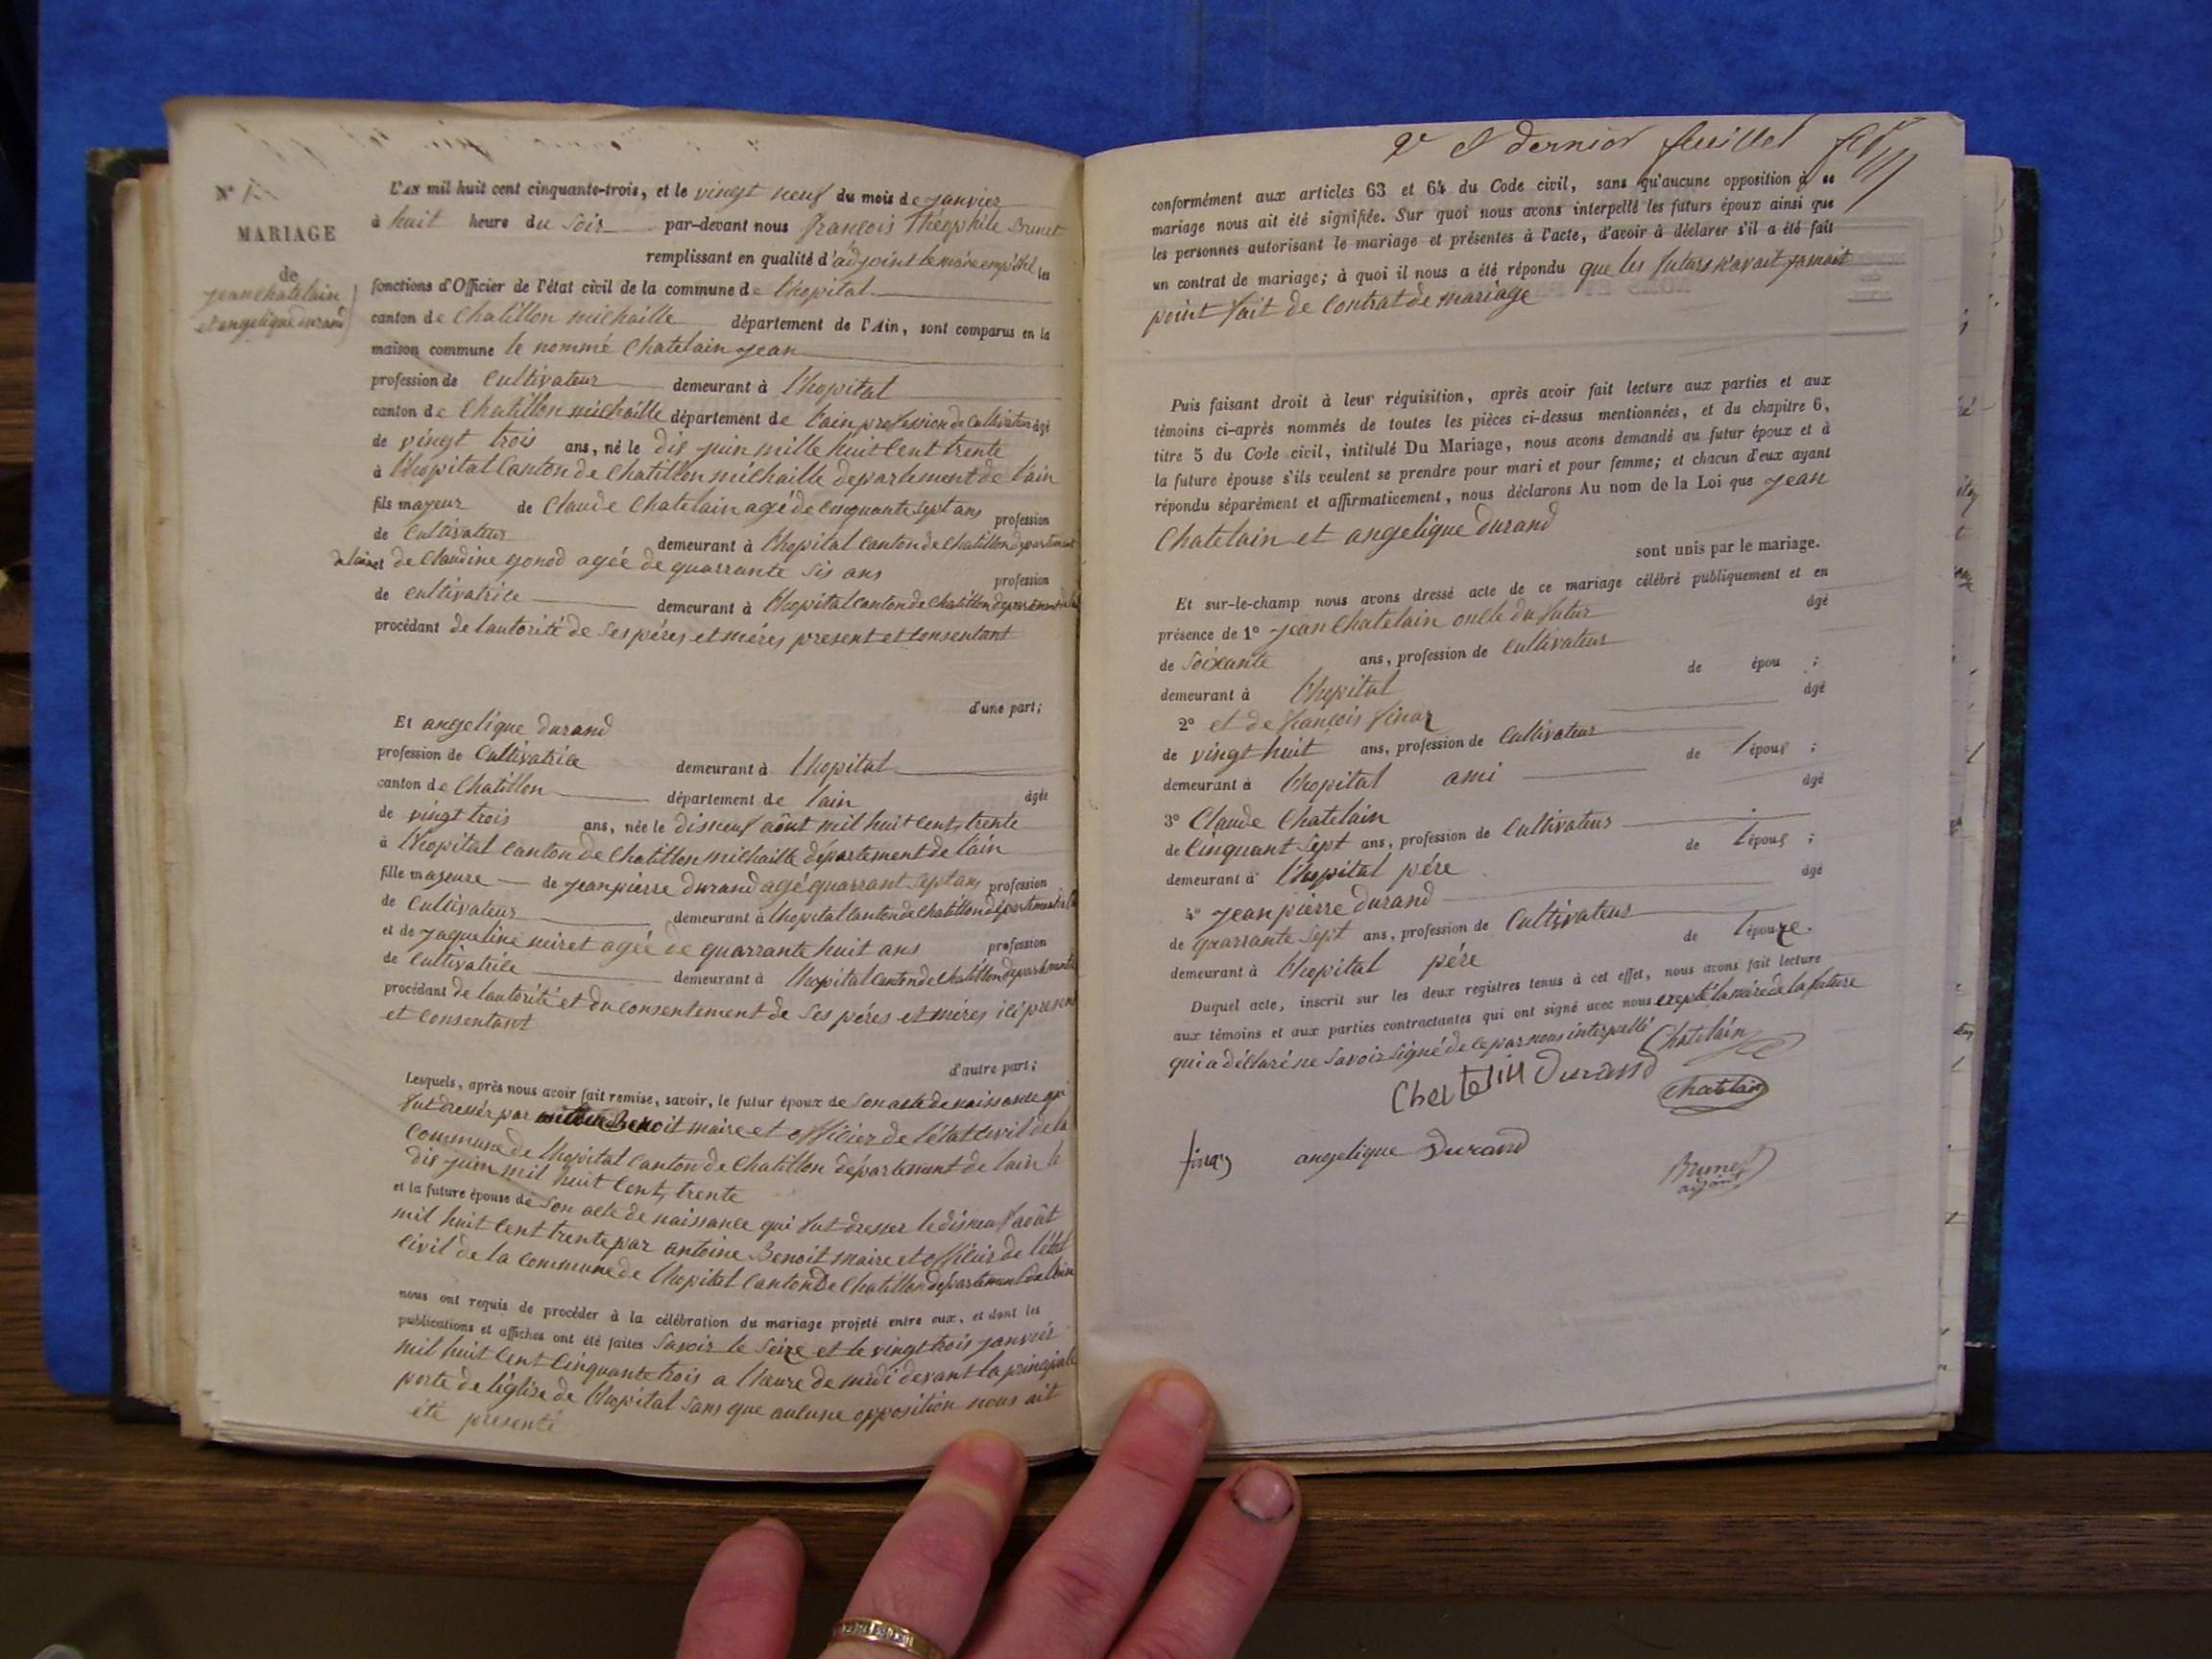 N° 1
MARIAGE
de
jean chatelain
et angelique durand
L'AN mil huit cent cinquante-trois, et le vingt neuf du mois de janvier
à huit heure du soir par-devant nous françois Théophile Brunet
remplissant en qualité d'adjoint le maire empêché les
fonctions d'Officier de l'état civil de la commune de lhopital
canton de Chatillon michaille département de l'Ain, sont comparus en la
maison commune le nommé Chatelain jean
profession de Cultivateur demeurant à lhopital
canton de Chatillon michaille département de lain profession de Cultivateur âgé
de vingt trois ans, né le dis juin mille huit Cent trente
à lhopital Canton de Chatillon michaille departement de lain
fils majeur de Claude Chatelain agé de Cinquante sept ans profession
de Cultivateur demeurant à lhopital Canton de Chatillon departement
de lain et de Claudine gonod agée de quarrante sis ans profession
de Cultivatrice demeurant à lhopital canton de Chatillon departement de la
procédant de lautorité de ses péres et méres present et Consentant
d'une part;
Et angelique durand
profession de Cultivatrice demeurant à lhopital
canton de Chatillon département de lain âgée
de vingt trois ans, née le disneuf aôut mil huit Cent, trente
à lhopital Canton de Chatillon michaille département de lain
fille majeure de jean pierre durand agé quarrant sept ans profession
de Cultivateur demeurant à lhopital Canton de Chatillon département de l
et de jaqueline miret agée de quarrante huit ans profession
de Cultivatrice demeurant à lhopital Canton de Chatillon departement
procédant de lautorité et du consentement de ses péres et méres ici presen
et Consentant
d'autre part;
Lesquels, après nous avoir fait remise, savoir, le futur époux de son acte de naissance qui
fut dressér par Benoit maire et officier de létat Civil de la
Commune de lhopital Canton de Chatillon département de lain le
dis juin mil huit Cent, trente
et la future épouse de son acte de naissance qui fut dresser le disneuf août
mil huit Cent trente par antoine Benoit maire et officier de létat
Civil de la Commune de lhopital Canton de Chatillon departement de lain
nous ont requis de procéder à la célébration du mariage projeté entre eux, et dont les
publications et affiches ont été faites Savoir le Seize et le vingt trois janvier
mil huit Cent Cinquante trois a lheure de midi devant la principale
porte de léglise de lhopital Sans que aucune opposition nous ait
été presenté
2e et dernier feuillet
conformément aux articles 63 et 64 du Code civil, sans qu'aucune opposition à ce
mariage nous ait été signifiée. Sur quoi nous avons interpellé les futurs époux ainsi que
les personnes autorisant le mariage et présentes à l'acte, d'avoir à déclarer s'il a été fait
un contrat de mariage; à quoi il nous a été répondu que les futurs n'avait jamait
point fait de Contrat de mariage
Puis faisant droit à leur réquisition, après avoir fait lecture aux parties et aux
témoins ci-après nommés de toutes les pièces ci-dessus mentionnées, et du chapitre 6,
titre 5 du Code civil, intitulé Du Mariage, nous avons demandé au futur époux et à
la future épouse s'ils veulent se prendre pour mari et pour femme; et chacun d'eux ayant
répondu séparément et affirmativement, nous déclarons Au nom de la Loi que jean
Chatelain et angelique durand
sont unis par le mariage.
Et sur-le-champ nous avons dressé acte de ce mariage célébré publiquement et en
présence de 1° jean Chatelain oncle du futur âgé
de Soixante ans, profession de Cultivateur
demeurant à lhopital de épou ;
2° et de françois finaz âgé
de vingt huit ans, profession de Cultivateur
demeurant à lhopital ami de l'épous ;
3° Claude Chatelain âgé
de Cinquant Sept ans, profession de Cultivateur
demeurant à lhopital pére de l'épous ;
4° jean pierre durand âgé
de quarrante Sept ans, profession de Cultivateur
demeurant à lhopital pére de l'épouze.
Duquel acte, inscrit sur les deux registres tenus à cet effet, nous avons fait lecture
aux témoins et aux parties contractantes qui ont signé avec nous exepté la mére de la future
qui a déclaré ne Savoir signé de ce par nous interpellé Chatelain
Chatelain Durand
Chatelain
finaz angelique Durand
Brunet
adjoint